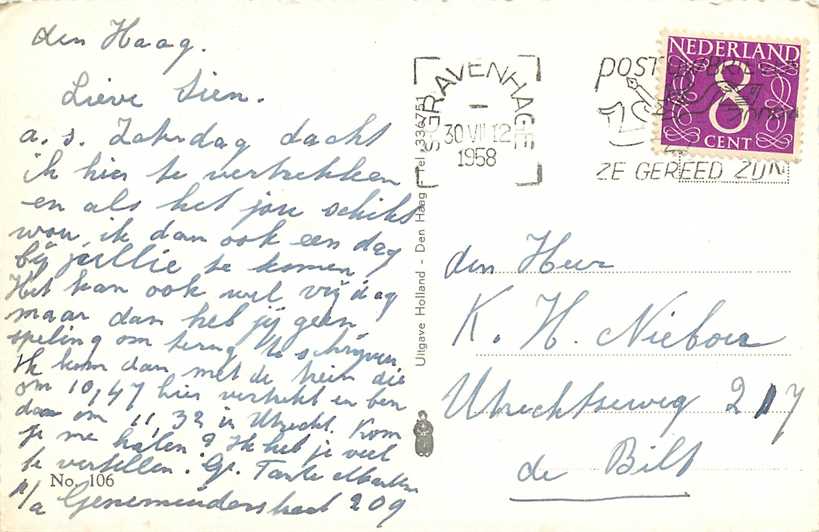 den Haag.
Lieve Sien.
a.s. Zaterdag dacht
ik hier te vertrekken
en als het jou schikt
wou ik dan ook een dag
bij jullie te komen
Het kan ook wel vrijdag
maar dan heb jij geen
speling om terug te schrijven
Ik kom dan met de trein die
om 10,47 hier vertrekt en ben
dan om 11,32 in Utrecht. Kom
je me halen? Ik heb je veel
te vertellen. Gr. Tante
p/a 209
No. 106
Uitgave Holland - Den Haag - Tel. 336751
'S GRAVENHAGE
30 VII 12
1958
POST
ZE GEREED ZIJN
NEDERLAND
8
CENT
den Heer
K. H. Nieboer
Utrechtseweg 217
de Bilt